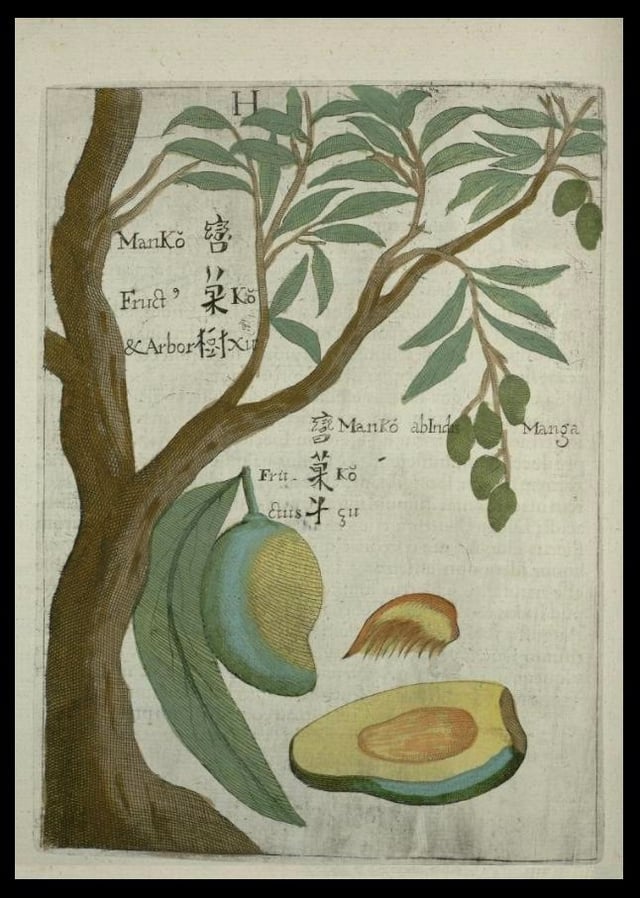 H
ManKŏ
Fruct⁹ 菓 Kŏ
& Arbor 樹 xu
ManKó ab Indis Manga
Fru- 菓 Kŏ
ctus çu